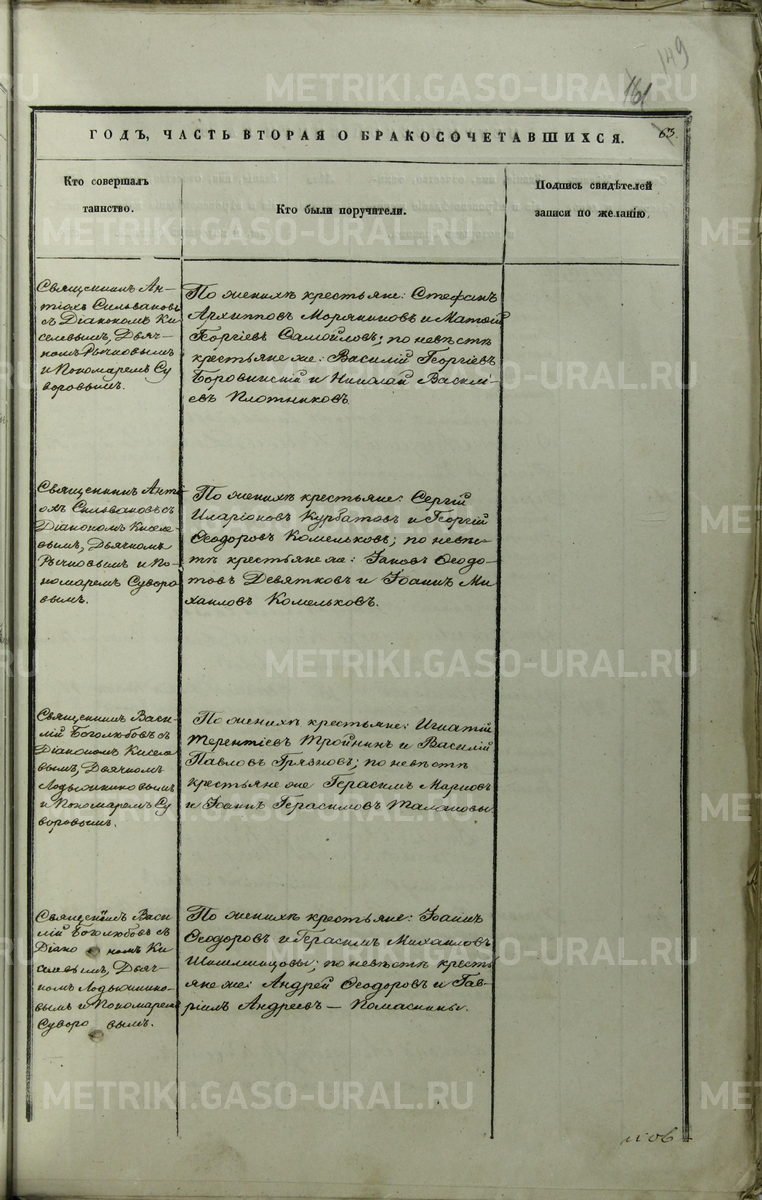 149
161
ГОДЪ, ЧАСТЬ ВТОРАЯ О БРАКОСОЧЕТАВШИХСЯ.
63.
Кто совершалъ
таинство.
Кто были поручители.
Подпись свидѣтелей
записи по желанію.
Священникъ Ан-
тіохъ Сильвановъ
съ Діакономъ Ки-
селевымъ, Дьяч-
комъ Рычковымъ
и Пономаремъ Су
воровымъ.
По женихѣ крестьяне: Стефанъ
Архипповъ Моряниновъ и Матвѣй
Георгіевъ Самойловъ; по невѣстѣ
крестьяне же: Василій Георгіевъ
Боровинскій и Николай Василі-
евъ Плотниковъ.
Священникъ Анті
охъ Сильвановъ съ
Діакономъ Киселе-
вымъ, Дьячкомъ
Рычковымъ и По-
номаремъ Суворо
вымъ.
По женихѣ крестьяне: Сергій
Иларіоновъ Курбатовъ и Георгій
Ѳеодоровъ Комельковъ; по невѣс-
тѣ крестьяне же: Іаковъ Ѳеодо-
товъ Девятковъ и Іоаннъ Ми
хаиловъ Комельковъ.
Священникъ Васи-
лій Боголюбовъ съ
Діакономъ Киселе
вымъ, Дьячкомъ
Лодыжниковымъ
и Пономаремъ Су
воровымъ.
По женихѣ крестьяне: Игнатій
Терентіевъ Тройнинъ и Василій
Павловъ Грязновъ; по невѣстѣ
крестьяне же Герасимъ Марковъ
и Іоаннъ Герасимовъ Талановы.
Священникъ Васи
лій Боголюбовъ съ
Діако номъ Ки
селевымъ, Дьяч-
комъ Лодыжнико-
вымъ и Пономаремъ
Суворо вымъ.
По женихѣ крестьяне: Іоаннъ
Ѳеодоровъ и Герасимъ Михаиловъ
Шишминцовы; по невѣстѣ кресть
яне же: Андрей Ѳеодоровъ и Гав-
ріилъ Андреевъ — Помаскины.
METRIKI.GASO-URAL.RU